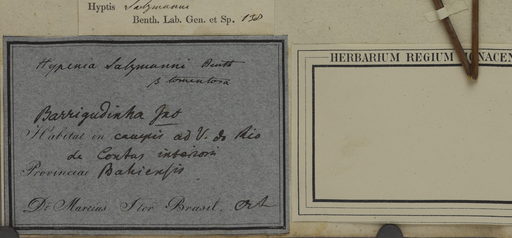 Hyptis Salzmanni
Benth. Lab. Gen. et Sp. 138
HERBARIUM REGIUM MONACEN
Hypenia Salzmanni Benth
β tomentosa
Barrigudinha
Habitat in campis ad V. do Rio
de Contas interiori
Provinciae Bahiensis
Dr Martius Iter Brasil.